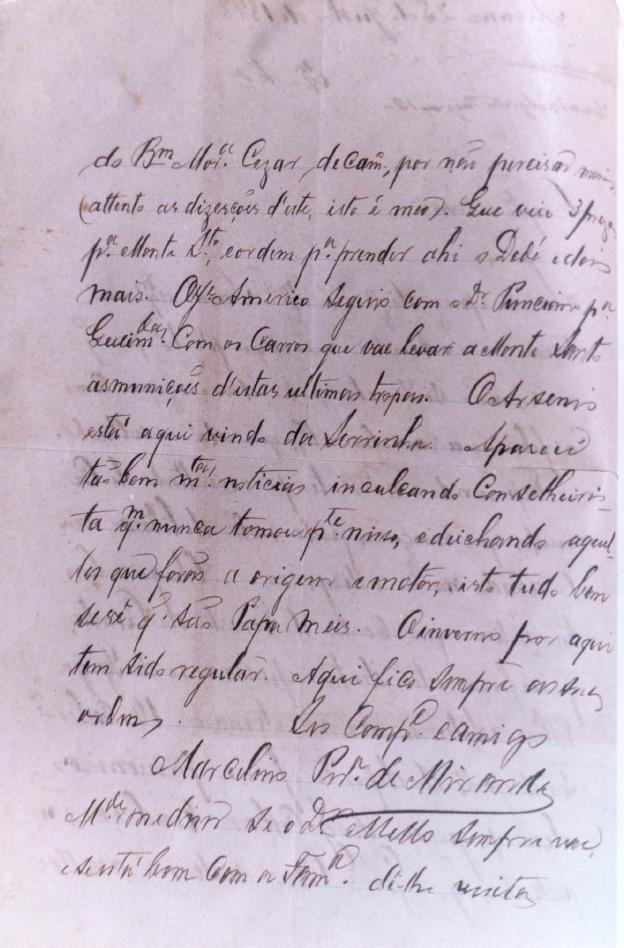 do Bm Mor.ª Cezar, de Cam., por não percizar mais
(attento as dizerções d'este, isto é meo). Que veio 3 praças
p.ª Monte Sto, e ordem p.ª prender ahi o Debé e dois
mais. O Americo Seguio com o Dr. p.ª
Queim.das Com os Carros que vae levar a Monte Santo
as munições d'estas ultimas tropas. O Arsenio
está aqui vindo da Serrinha. Apareceu
tãobem m.tas noticias inculcando Conselheiris-
ta q.m nunca tomou p.te nisso, e deichando aquel-
les que forão a origem e motor, isto tudo bem
se vê q' são Papa meis. O inverno por aqui
tem sido regular. Aqui fico sempre as suas
ordens. Seo Comp.e e amigo
Marcelino Per.ª de Miranda
M.de me dizer se o Dr. Mello sempre vae,
e se está bom com a Fam.ª dê-lhe visitas